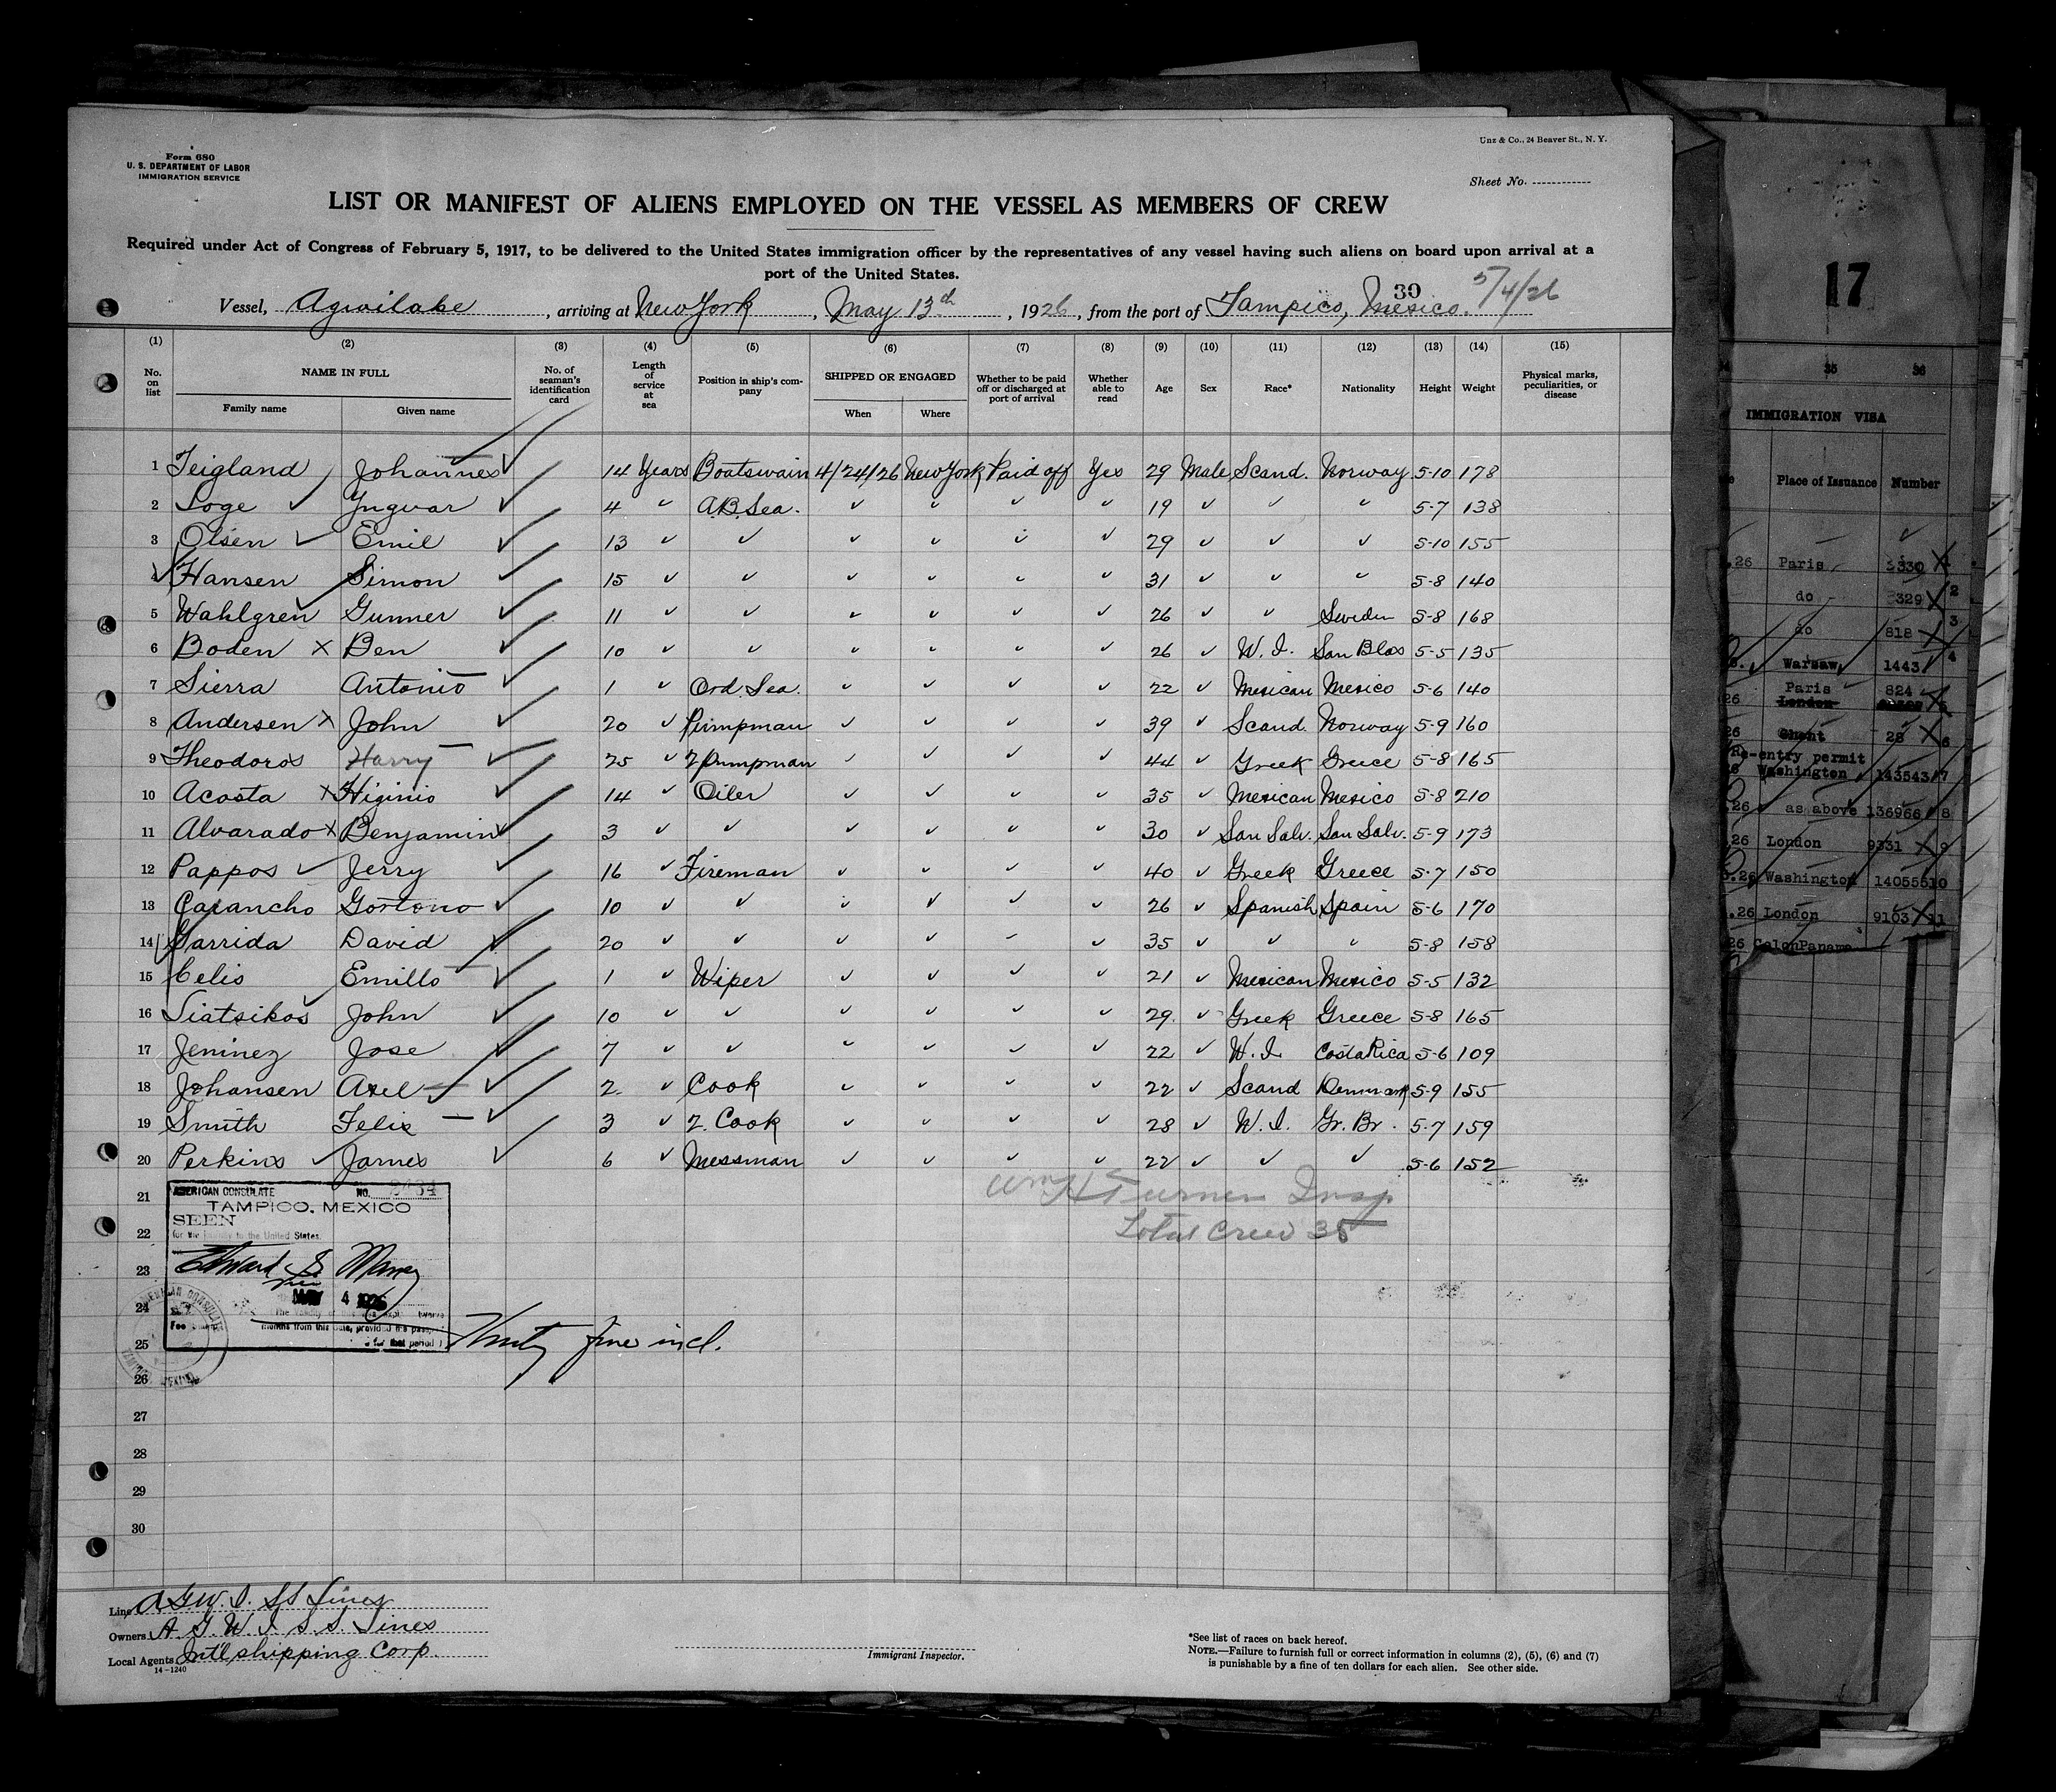 Form 680
U. S. DEPARTMENT OF LABOR
IMMIGRATION SERVICE
Unz & Co., 24 Beaver St., N. Y.
Sheet No.
LIST OR MANIFEST OF ALIENS EMPLOYED ON THE VESSEL AS MEMBERS OF CREW
Required under Act of Congress of February 5, 1917, to be delivered to the United States immigration officer by the representatives of any vessel having such aliens on board upon arrival at a
port of the United States.
30 5/4/26
Vessel, Agwilake, arriving at New York, May 13th, 1926, from the port of Tampico, Mexico.
(1) (2) (3) (4) (5) (6) (7) (8) (9) (10) (11) (12) (13) (14) (15)
No. on list NAME IN FULL Family name Given name No. of seaman's identification card Length of service at sea Position in ship's company SHIPPED OR ENGAGED When Where Whether to be paid off or discharged at port of arrival Whether able to read Age Sex Race* Nationality Height Weight Physical marks, peculiarities, or disease
1 Teigland Johannes ✓ 14 Years Boatswain 4/24/26 New York Paid off Yes 29 Male Scand. Norway 5-10 178
2 Soge ✓ Yngvar ✓ 4 ✓ A.B. Sea. ✓ ✓ ✓ ✓ 19 ✓ ✓ ✓ 5-7 138
3 Olsen ✓ Emil ✓ 13 ✓ ✓ ✓ ✓ ✓ ✓ 29 ✓ ✓ ✓ 5-10 155
4 Hansen Simon ✓ 15 ✓ ✓ ✓ ✓ ✓ ✓ 31 ✓ ✓ ✓ 5-8 140
5 Wahlgren Gunner ✓ 11 ✓ ✓ ✓ ✓ ✓ ✓ 26 ✓ ✓ Sweden 5-8 168
6 Boden X Ben ✓ 10 ✓ ✓ ✓ ✓ ✓ ✓ 26 ✓ W. I. San Blas 5-5 135
7 Sierra Antonio ✓ 1 ✓ Ord. Sea. ✓ ✓ ✓ ✓ 22 ✓ Mexican Mexico 5-6 140
8 Andersen X John ✓ 20 ✓ Pumpman ✓ ✓ ✓ ✓ 39 ✓ Scand. Norway 5-9 160
9 Theodoros Harry ✓ 25 ✓ 2 Pumpman ✓ ✓ ✓ ✓ 44 ✓ Greek Greece 5-8 165
10 Acosta X Higinio ✓ 14 ✓ Oiler ✓ ✓ ✓ ✓ 35 ✓ Mexican Mexico 5-8 210
11 Alvarado X Benjamin ✓ 3 ✓ ✓ ✓ ✓ ✓ ✓ 30 ✓ San Salv. San Salv. 5-9 173
12 Pappos ✓ Jerry ✓ 16 ✓ Fireman ✓ ✓ ✓ ✓ 40 ✓ Greek Greece 5-7 150
13 Carancho Gostono ✓ 10 ✓ ✓ ✓ ✓ ✓ ✓ 26 ✓ Spanish Spain 5-6 170
14 Garrida David ✓ 20 ✓ ✓ ✓ ✓ ✓ ✓ 35 ✓ ✓ ✓ 5-8 158
15 Celis Emillo ✓ 1 ✓ Wiper ✓ ✓ ✓ ✓ 21 ✓ Mexican Mexico 5-5 132
16 Siatsikos John ✓ 10 ✓ ✓ ✓ ✓ ✓ ✓ 29 ✓ Greek Greece 5-8 165
17 Jeminez Jose ✓ 7 ✓ ✓ ✓ ✓ ✓ ✓ 22 ✓ W. I. Costa Rica 5-6 109
18 Johansen Axel ✓ 2 ✓ Cook ✓ ✓ ✓ ✓ 22 ✓ Scand Denmark 5-9 155
19 Smith Felix ✓ 3 ✓ 2. Cook ✓ ✓ ✓ ✓ 28 ✓ W. I. Gr. Br. 5-7 159
20 Perkins ✓ James ✓ 6 ✓ Messman ✓ ✓ ✓ ✓ 22 ✓ ✓ ✓ 5-6 152
Wm H Turner Insp
Total Crew 35
21
22
23
24
25
26
27
28
29
30
AMERICAN CONSULATE NO.
TAMPICO, MEXICO
SEEN
for the to the United States.
Edward S Maney
MAY 4 1926
Fee
months from this date, provided
for that period
Thirty five incl.
Line A.G.W.I. SS Lines
Owners A. G. W. I. S. S. Lines
Local Agents Int'l shipping Corp.
14-1240
Immigrant Inspector.
*See list of races on back hereof.
NOTE.—Failure to furnish full or correct information in columns (2), (5), (6) and (7)
is punishable by a fine of ten dollars for each alien. See other side.
17
35 36
IMMIGRATION VISA
Place of Issuance Number
.26 Paris 3330 X
do 3329 X 2
do 818 X 3
Warsaw 1443 4
Paris 824
26 London 5
26 Ghent 28 X 6
Re-entry permit
Washington 143543 7
.26 as above 136966 8
.26 London 9331 X 9
.26 Washington 140555 10
.26 London 9103 X 11
26 Colon Panama